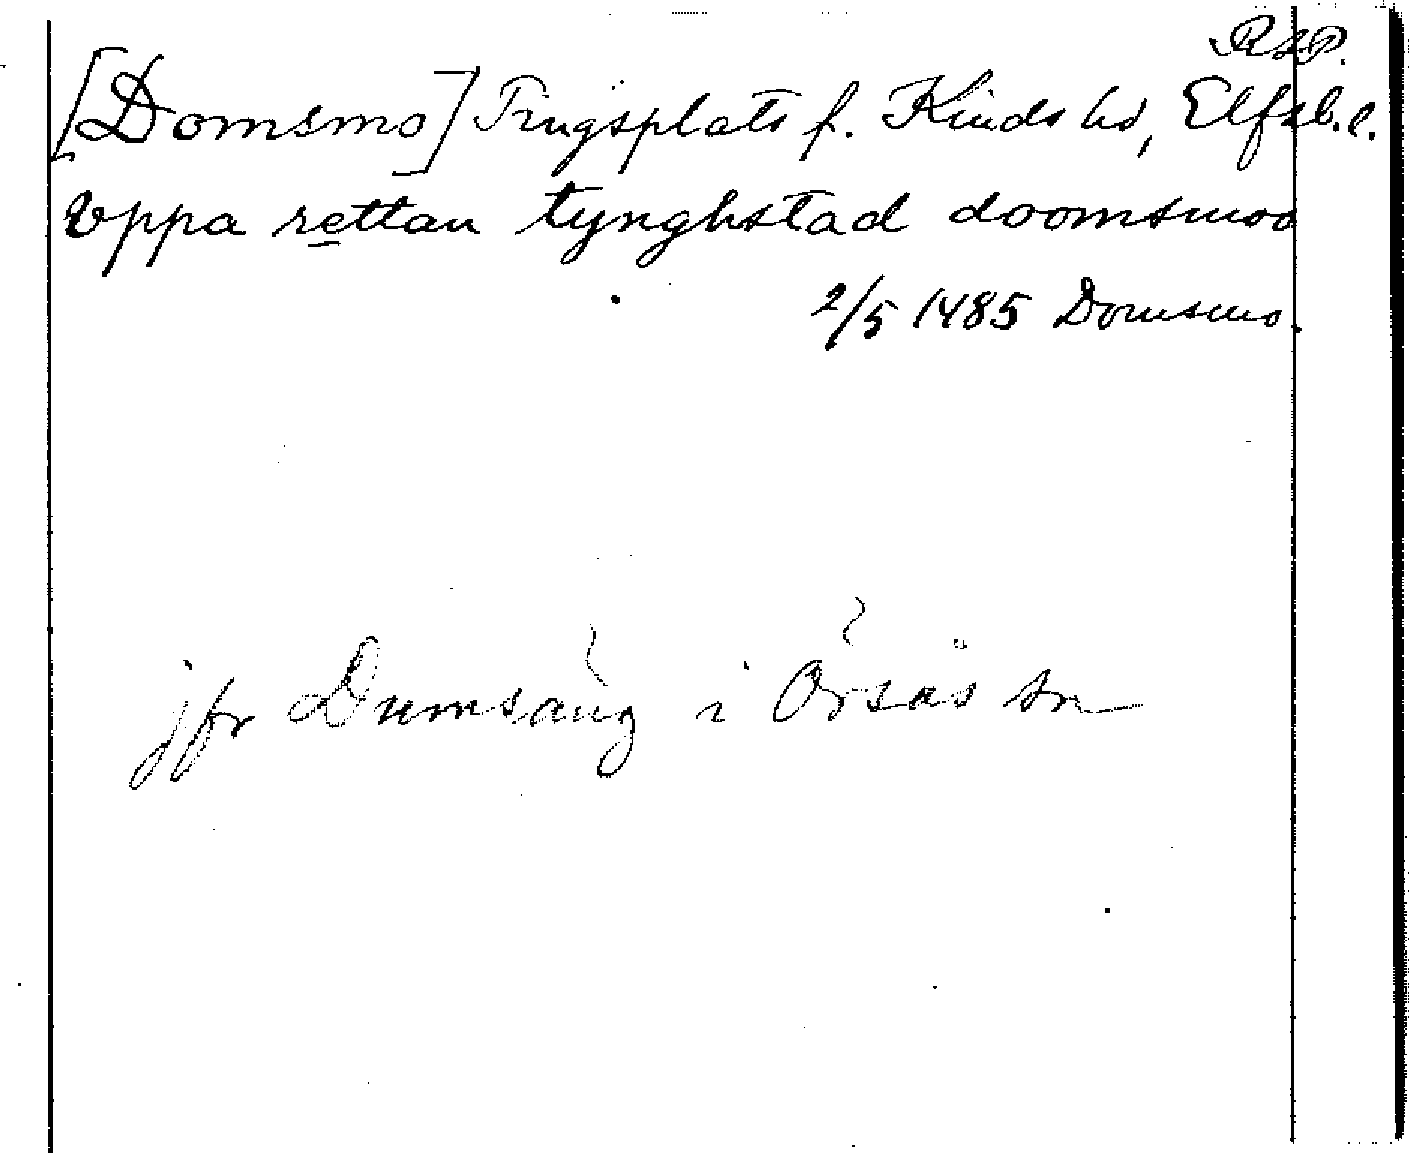 RAP.
[Domsmo] Tingsplats f. Kinds hd, Elfsb. l.
Vppa rettan tynghstad doomsmoo
2/5 1485 Domsmo.
jfr Dumsäng i Örsås sn